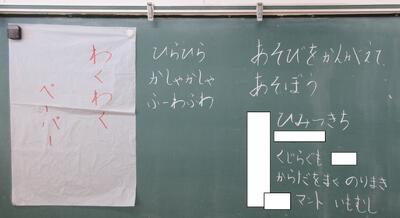 わくわく
ひらひら
かしゃかしゃ
ふーわふわ
あそびをかんがえて
あそぼう
ひみつきち
くじらぐも
からだをまく のりまき
マント いもむし